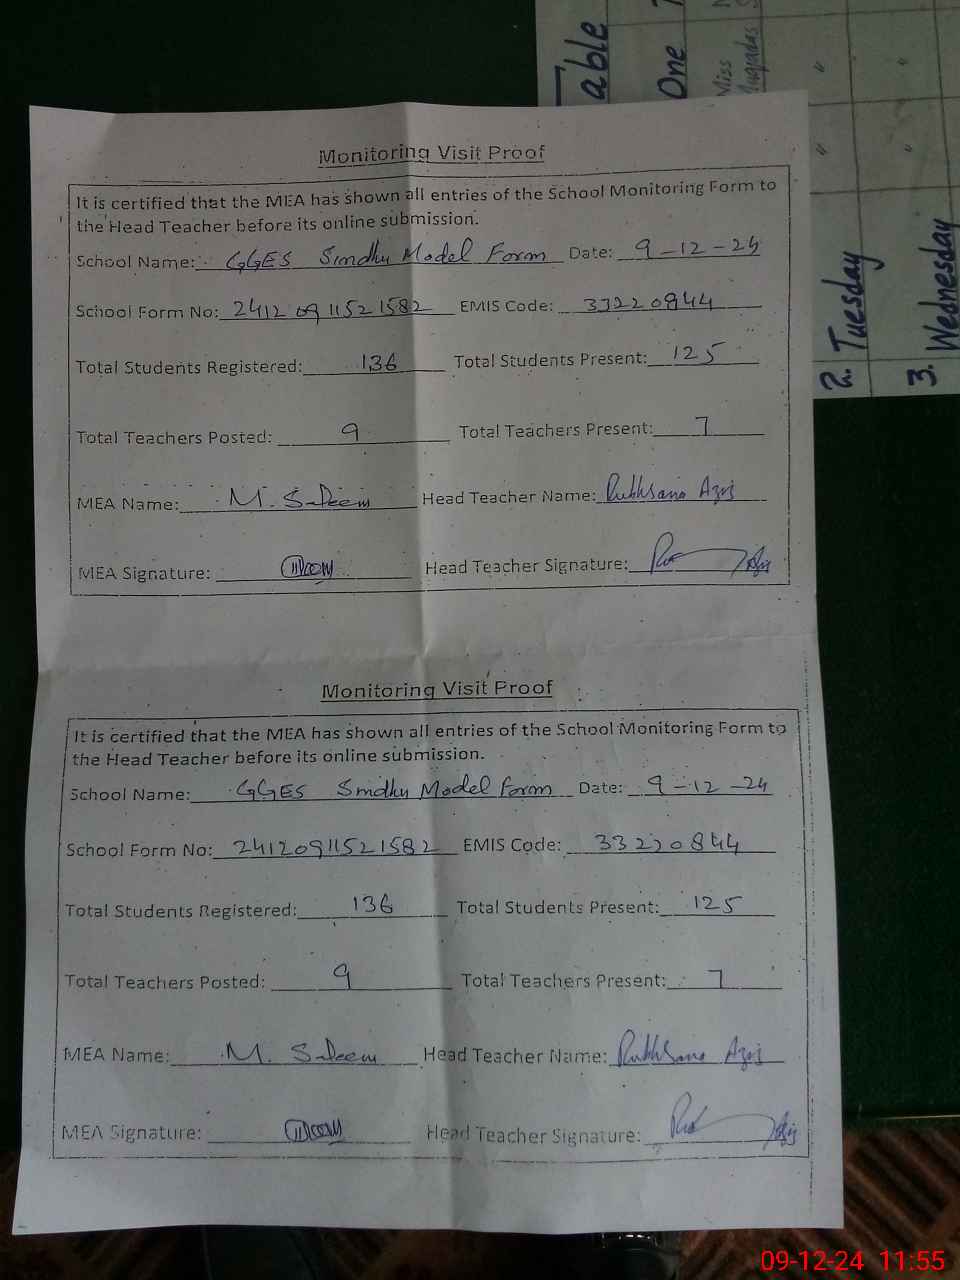 Table
One
Miss
Muqadas
2. Tuesday
3. Wednesday
Monitoring Visit Proof
It is certified that the MEA has shown all entries of the School Monitoring Form to
the Head Teacher before its online submission.
School Name: GGES Sindhu Model Form Date: 9-12-24
School Form No: 2412091152 1582 EMIS Code: 33220844
Total Students Registered: 136 Total Students Present: 125
Total Teachers Posted: 9 Total Teachers Present: 7
MEA Name: M. Saleem Head Teacher Name: Rukhsana Aziz
MEA Signature: Head Teacher Signature:
Monitoring Visit Proof
It is certified that the MEA has shown all entries of the School Monitoring Form to
the Head Teacher before its online submission.
School Name: GGES Sindhu Model Form Date: 9-12-24
School Form No: 24120911521582 EMIS Code: 33220844
Total Students Registered: 136 Total Students Present: 125
Total Teachers Posted: 9 Total Teachers Present: 7
MEA Name: M. Saleem Head Teacher Name: Rukhsana Aziz
MEA Signature: Head Teacher Signature:
09-12-24 11:55